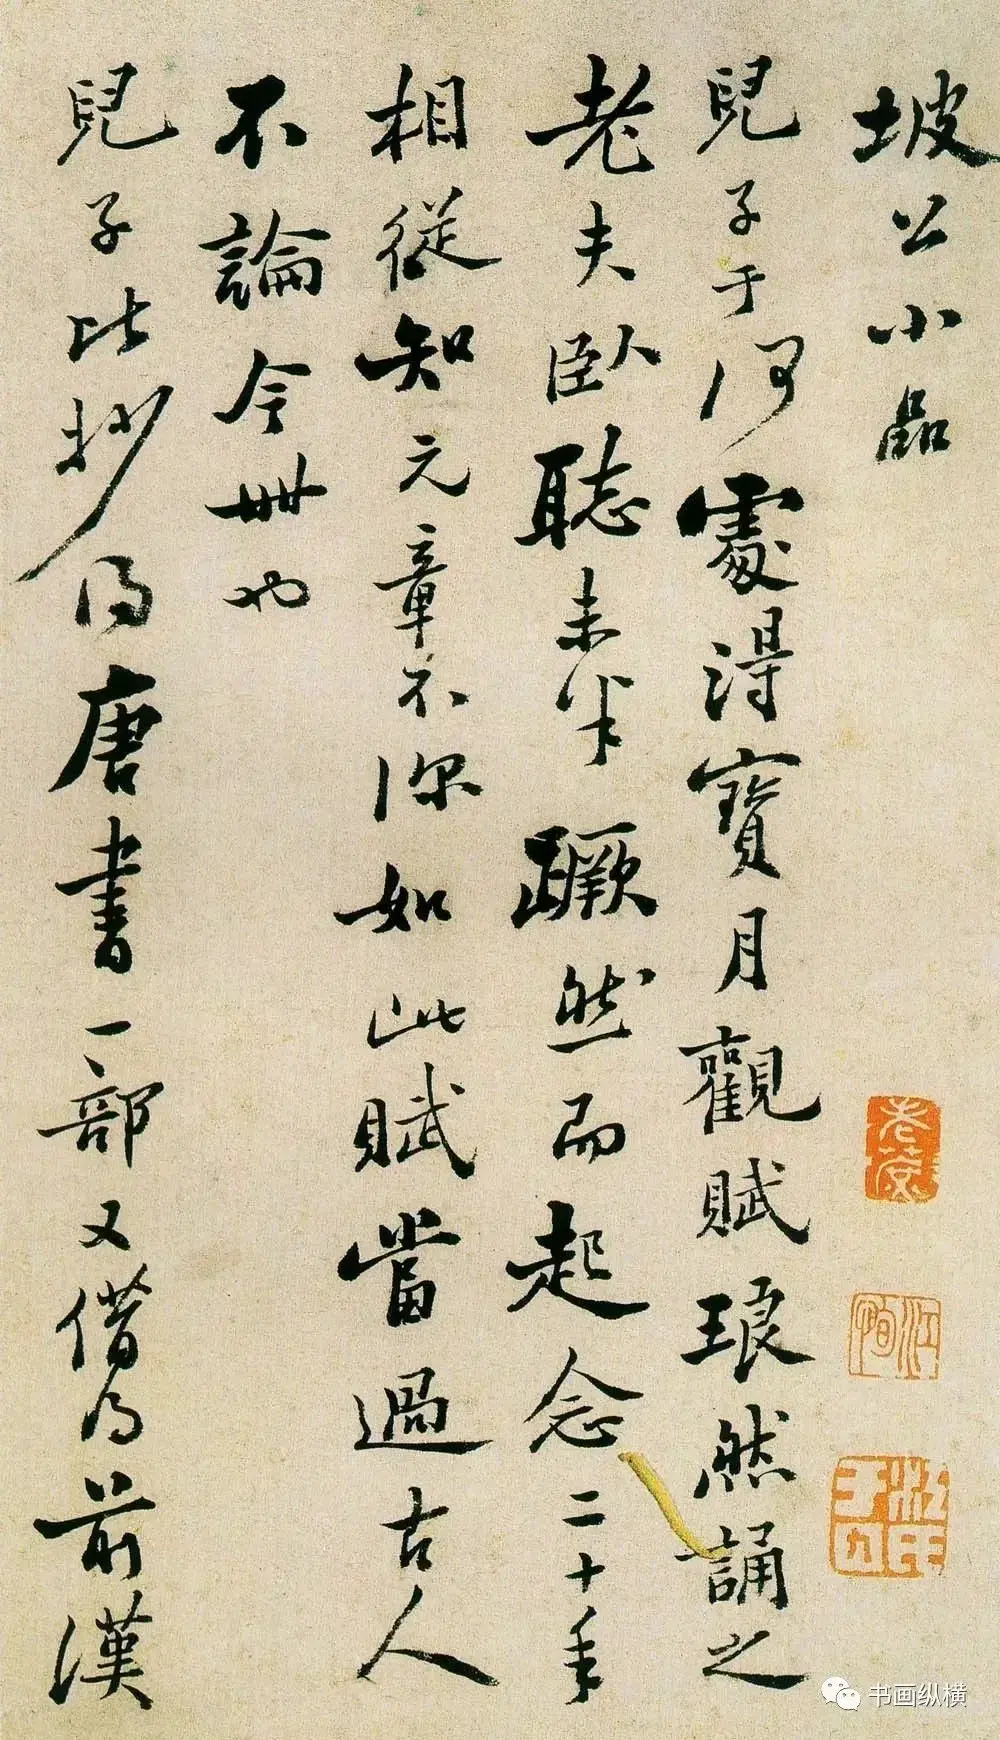 坡公小品
兒子于何處得寶月觀賦琅然誦之
老夫臥聽未半蹶然而起念二十年
相從知元章不深如此賦當過古人
不論今世也
兒子比抄得唐書一部又借得前漢
书画纵横